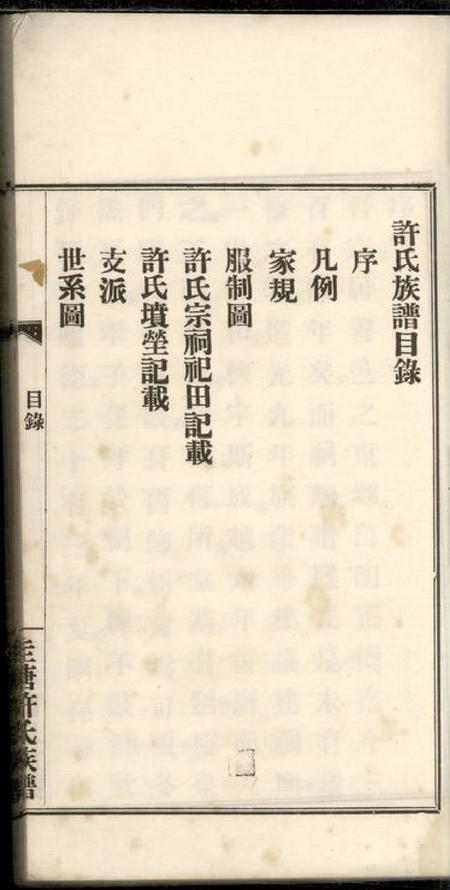 許氏族譜目錄
序
凡例
家規
服制圖
許氏宗祠祀田記載
許氏墳塋記載
支派
世系圖
目錄
塘許氏族譜